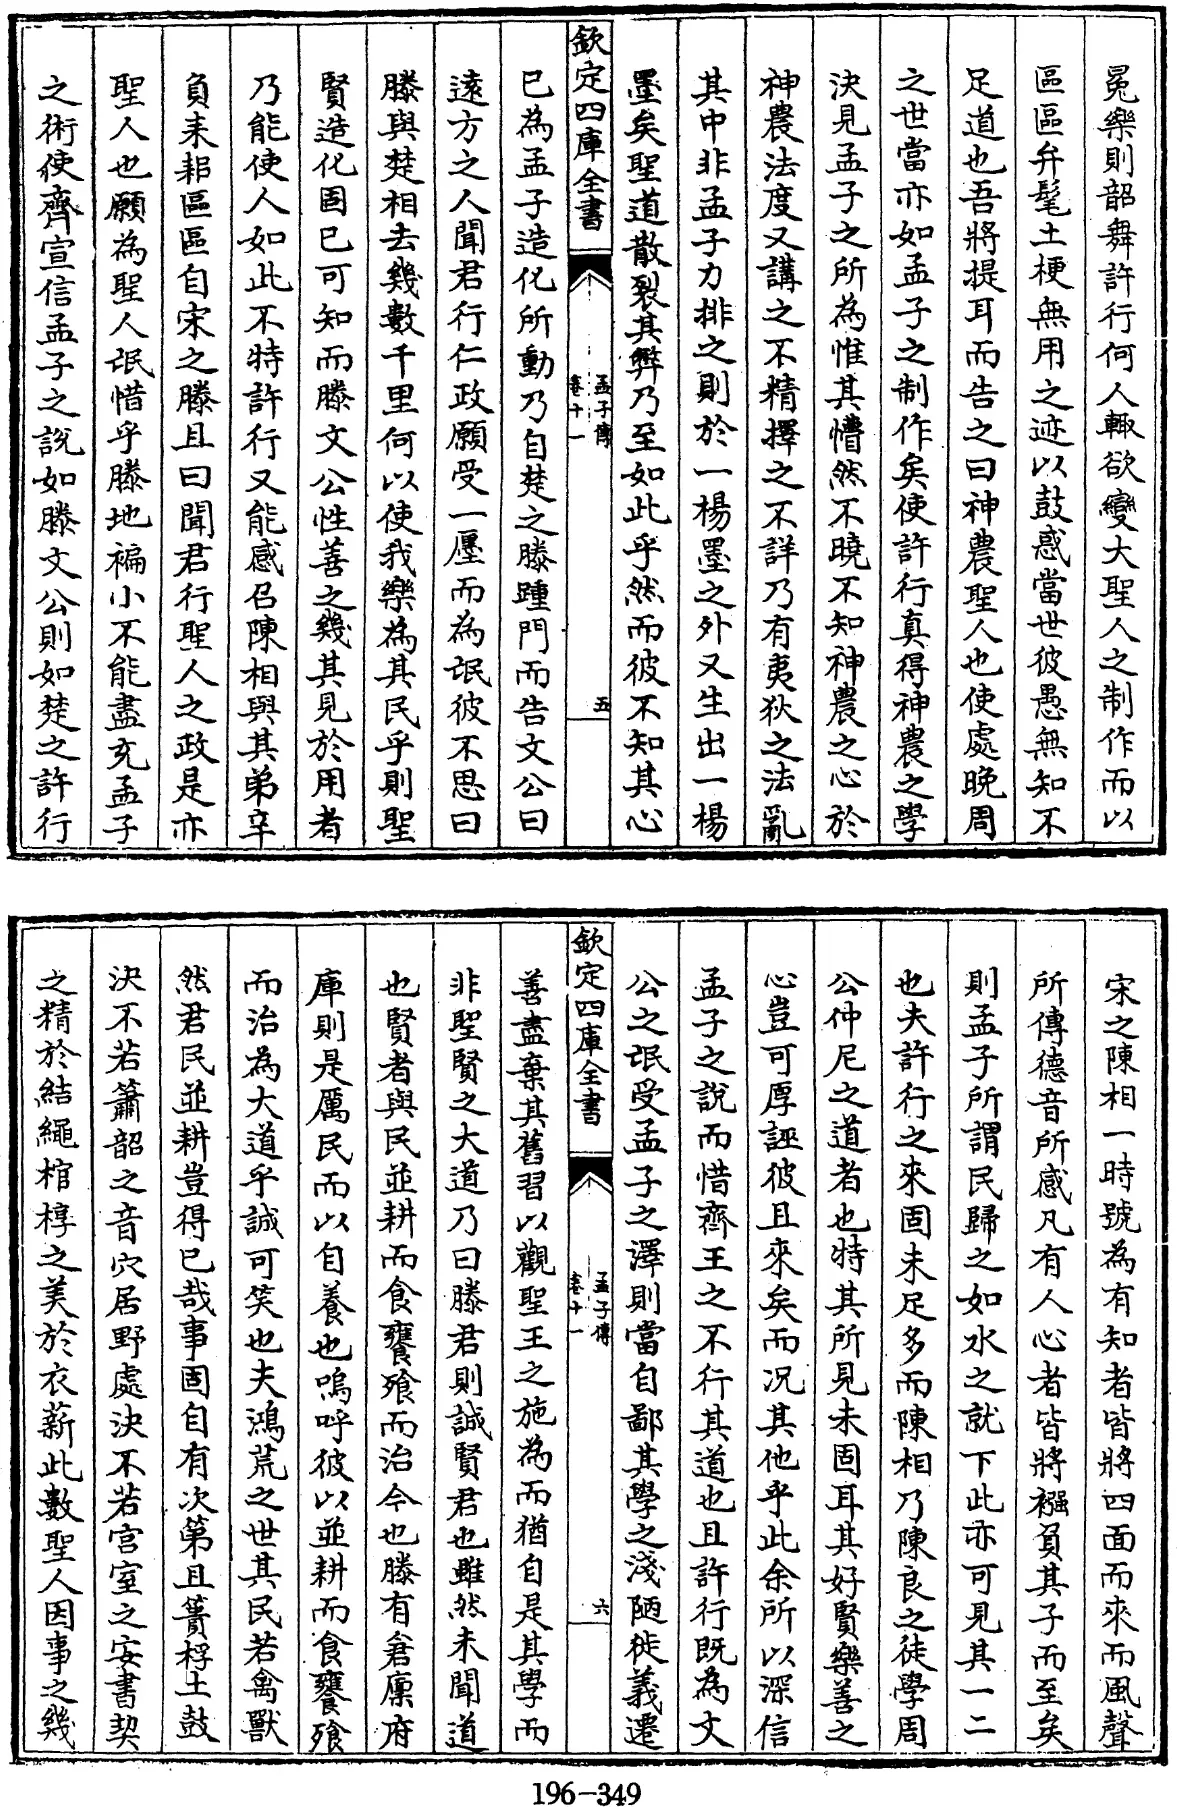 冕樂則韶舞許行何人輙欲變大聖人之制作而以
區區弁髦土梗無用之迹以鼓惑當世彼愚無知不
足道也吾將提耳而告之曰神農聖人也使處晚周
之世當亦如孟子之制作矣使許行真得神農之學
決見孟子之所為惟其懵然不曉不知神農之心於
神農法度又講之不精擇之不詳乃有夷狄之法亂
其中非孟子力排之則於一楊墨之外又生出一楊
墨矣聖道散裂其弊乃至如此乎然而彼不知其心
欽定四庫全書
孟子傳
卷十一
五
已為孟子造化所動乃自楚之滕踵門而告文公曰
遠方之人聞君行仁政願受一廛而為氓彼不思曰
滕與楚相去幾數千里何以使我樂為其民乎則聖
賢造化固已可知而滕文公性善之幾其見於用者
乃能使人如此不特許行又能感召陳相與其弟辛
負耒耜區區自宋之滕且曰聞君行聖人之政是亦
聖人也願為聖人氓惜乎滕地褊小不能盡充孟子
之術使齊宣信孟子之說如滕文公則如楚之許行
宋之陳相一時號為有知者皆將四面而來而風聲
所傳德音所感凡有人心者皆將襁負其子而至矣
則孟子所謂民歸之如水之就下此亦可見其一二
也夫許行之來固未足多而陳相乃陳良之徒學周
公仲尼之道者也特其所見未固耳其好賢樂善之
心豈可厚誣彼且來矣而况其他乎此余所以深信
孟子之說而惜齊王之不行其道也且許行既為文
公之氓受孟子之澤則當自鄙其學之淺陋徙義遷
欽定四庫全書
孟子傳
卷十一
六
善盡棄其舊習以觀聖王之施為而猶自是其學而
非聖賢之大道乃曰滕君則誠賢君也雖然未聞道
也賢者與民並耕而食饔飧而治今也滕有倉廩府
庫則是厲民而以自養也嗚呼彼以並耕而食饔飧
而治為大道乎誠可笑也夫鴻荒之世其民若禽獸
然君民並耕豈得已哉事固自有次第且蕢桴土鼓
決不若簫韶之音穴居野處決不若宫室之安書契
之精於結繩棺椁之美於衣薪此數聖人因事之幾
196-349